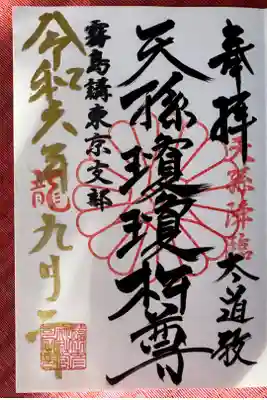 奉拝
天孫降臨
太道教
天孫瓊瓊杵尊
霧島講東京支部
令和六年九月
龍